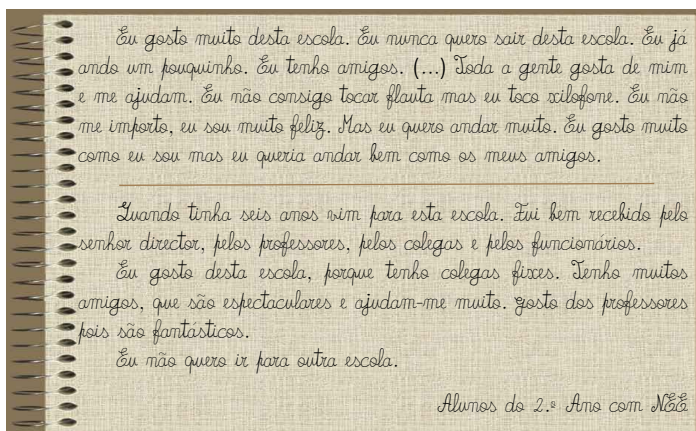 Eu gosto muito desta escola. Eu nunca quero sair desta escola. Eu já
ando um pouquinho. Eu tenho amigos. (...) Toda a gente gosta de mim
e me ajudam. Eu não consigo tocar flauta mas eu toco xilofone. Eu não
me importo, eu sou muito feliz. Mas eu quero andar muito. Eu gosto muito
como eu sou mas eu queria andar bem como os meus amigos.
Quando tinha seis anos vim para esta escola. Fui bem recebido pelo
senhor director, pelos professores, pelos colegas e pelos funcionários.
Eu gosto desta escola, porque tenho colegas fixes. Tenho muitos
amigos, que são espectaculares e ajudam-me muito. gosto dos professores
pois são fantásticos.
Eu não quero ir para outra escola.
Alunos do 2.º Ano com NEE